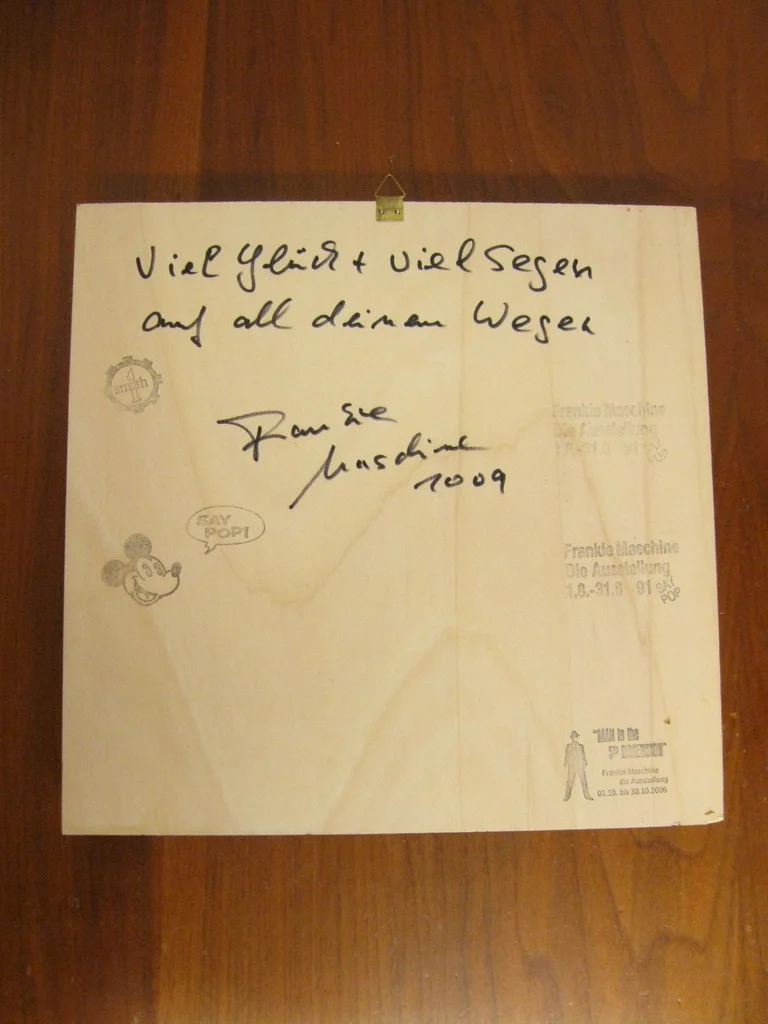 Viel Glück + viel Segen
auf all deinen Wegen
Frankie
Maschine
2009
smith
1
SAY
POP!
Frankie Maschine
Die Ausstellung
1.8.-31.8 91
SAY
POP
Frankie Maschine
Die Ausstellung
1.8.-31.8 91
SAY
POP
"MAN in the
5th DIMENSION"
Frankie Maschine
die Ausstellung
01.10. bis 30.10.2006